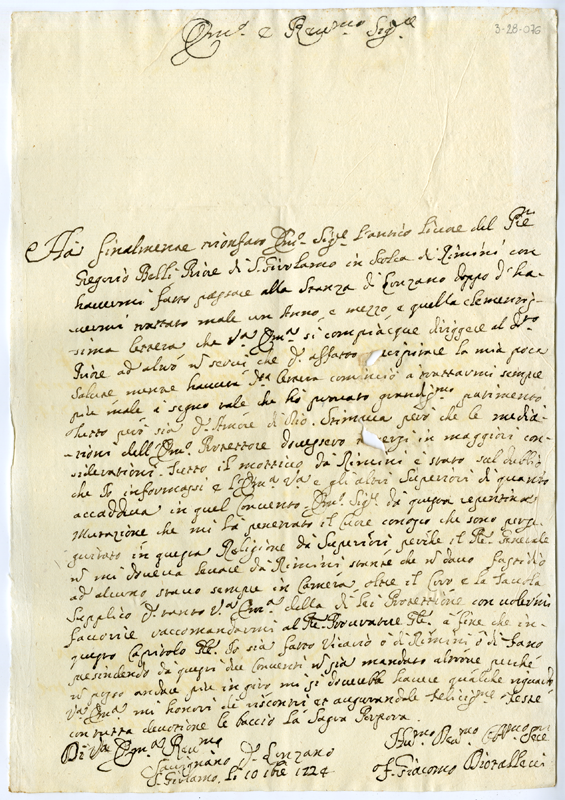 3-28-076
Em.º e Reu.mo Sig.re
Hà finalmente trionfato Em.º Sig.re l'antico livore del P.re
Gregorio Belli Priore di S. Girolamo in Scolca di Rimini con
havermi fatto passare alla Stanza di Conzano doppo d'ha-
uermi trattato male un Anno, e mezzo, e quella clementis-
sima lettera che V.a Em.a si compiacque diriggere al d.to
Priore ad altro ñ seruì che d'affatto la mia poca
salute mentre hauuta d.ta lettera cominciò a trattarmi sempre
più male à segno tale che hò prouato grandis.mo patimento
tutto però sia d'Amore di Dio. Stimaua però che le media-
tioni dell'Em.º Protettore douessero in maggior con-
siderationi. Tutto il mottiuo da Rimini è stato sul dubbio
che Io informassi e l'Em.a V.a e gli altri Superiori di quanto
accadeua in quel Conuento. Em.º Sig.re da questa repentina
Mutazione che mi hà penetrato il Cuore conosco che sono perse-
guitato in questa Religione da Superiori perche il P.re Generale
ñ mi doueua leuare da Rimini stante che ñ dauo fastidio
ad alcuno stauo sempre in Camera oltre il Coro e la Tauola
Supplico d.º tanto V.a Em.a della di Lei Protettione con uolermi
fauorire raccomandarmi al P.re Procuratore a fine che in
questo Capitolo Io sia fatto Vicario ò di Rimini ò di Fano
prescindendo da questi due Conuenti ñ sia mandato altroue perche
ñ posso andare più in giro mi si dourebbe hauere qualche riguardo
V.a Em.a mi honori di riscontri et augurandole felicis.me feste
con tutta deuotione le baccio la Sagra Porpora.
Di V.a Em.a Reu.ma
Sauignano d.º
S. Girolamo. li 10 1724
Hu.mo Deu.mo
F. Giacomo